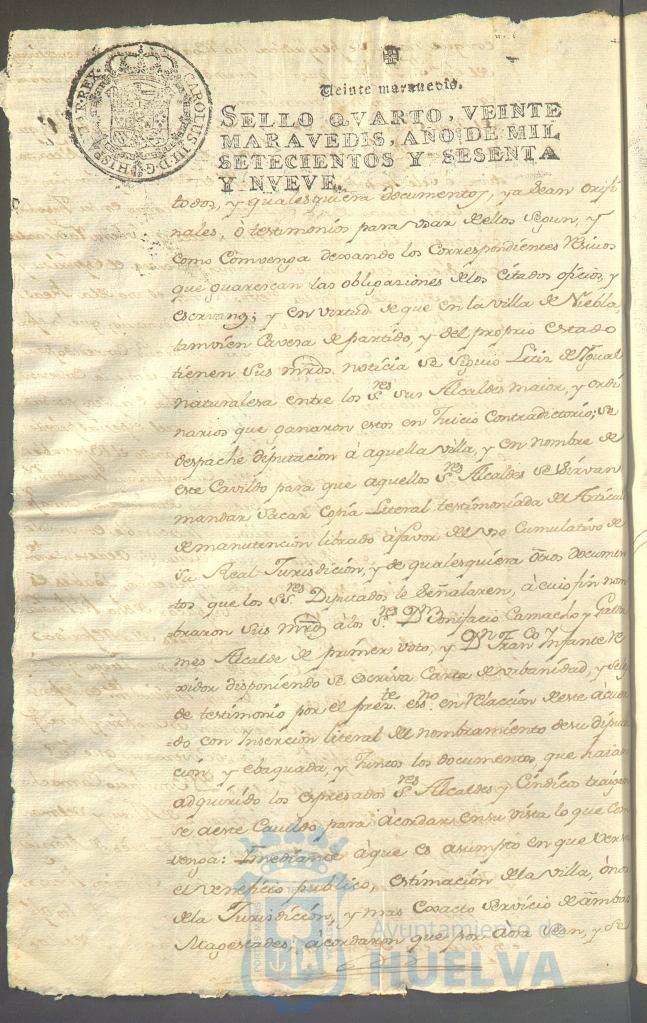 CAROLUS III D G HISPANIAR REX
Veinte maravedis.
SELLO QVARTO, VEINTE
MARAVEDIS, AÑO DE MIL
SETECIENTOS Y SESENTA
Y NVEVE.
todos, y qualesquiera documentos, ya sean origi
nales, o testimonios para usar dellos segun, y
como Convenga dexando los Correspondientes
que guarescan las obligaziones delos citados oficios, y
escrivanos; y en virtud de que en la villa de Niebla,
tamvien Cavesa de partido, y del proprio estado
tienen sus mrds. noticia se siguio Litis de Igual
naturalesa entre los Sres. sus Alcaldes maior, y ordi
narios que ganaron estos en Juicio Contradictorio; se
despache diputacion à aquella villa, y en nombre de
este Cavildo para que aquellos Sres. Alcaldes se sirvan
mandar sacar Copia Literal testimoniada del
de manutencion librado à favor del uso Cumulativo de
su Real Jurisdicion, y de qualesquiera otros documen
tos que los SSres. Diputados le señalaren, à cuio fin nom
braron sus mrds. à los Sres. Dn. Bonifacio Camacho y
Alcalde de primer voto, y Dn. Franco. Infante
xidor disponiendo se escriva Carta de urbanidad, y
de testimonio por el preste. essno. en Relaccion de este àcuer
do con Insercion literal del nombramiento de su diputa
cion, y ebaquada, y Juntos los documentos que haian
adquirido los expresados Sres. Alcaldes y Cindico
se à este Cavildo para àcordar en su vista lo que con
venga: Imediante à que es asumpto en que versa
el veneficio publico, estimacion dela villa,
dela Jurisdicion, y mas exacto servicio de àmbas
Magestades; àcordaron que por àora sean, y se
Ayuntamiento de
HUELVA